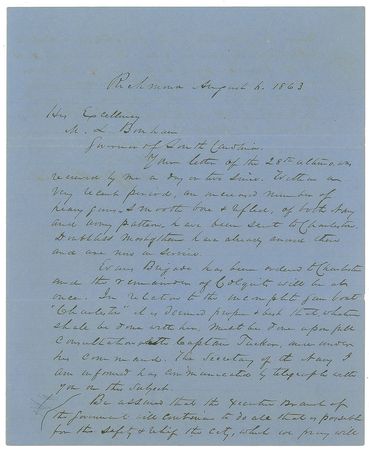 Richmond August 6. 1863
His Excellency
M. L. Bonham
Governor of South Carolina.
Your letter of the 28th ultimo, was
received by me a day or two since. Within a
very recent period, an increased number of
heavy guns, smooth bone & rifled, of both Navy
and army pattern, have been sent to Charleston.
Doubtless most of them have already arrived there
and are now in service.
Evans Brigade has been ordered to Charleston
and the remainder of Colquitt's will be at
once. In relation to the incomplete gun boat
"Charleston" it is deemed proper that whatever
shall be done with her, must be done upon full
consultation with Captain Tucker, now under
his command. The Secretary of the Navy I
am informed has communicated by telegraph with
you on the subject.
Be assured that the Executive Branch of
the government will continue to do all that is possible
for the safety & relief of the City, which we pray will